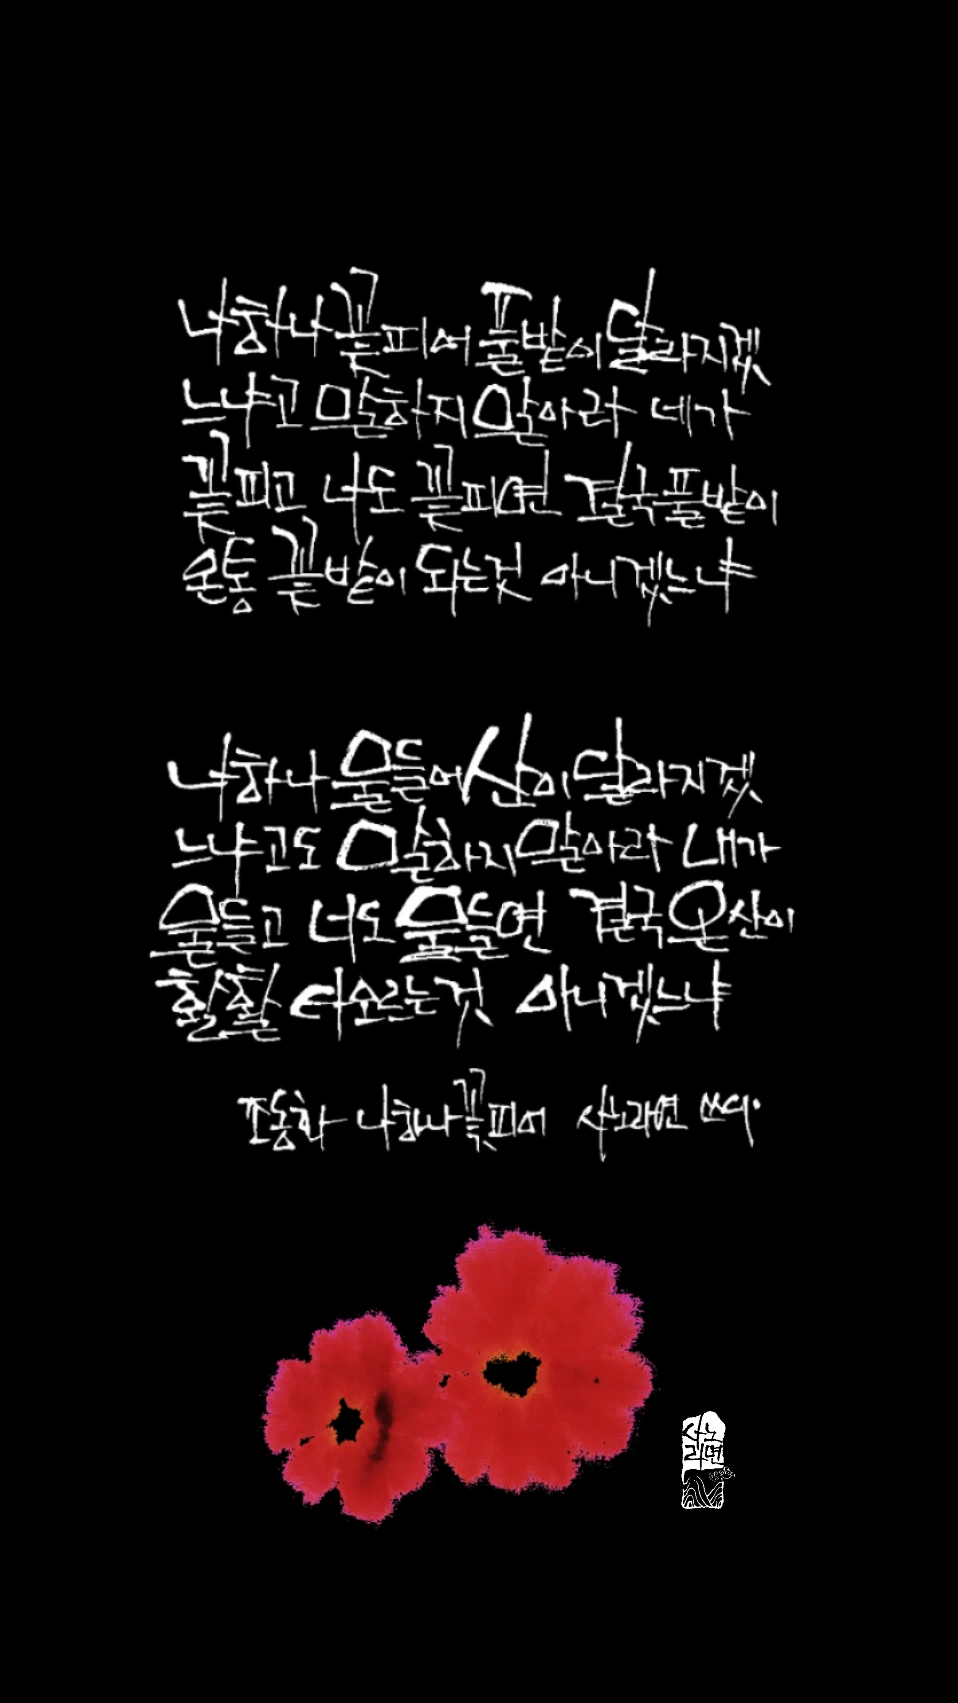 나하나 꽃피어 풀밭이 달라지겠
느냐고 말하지 말아라 네가
꽃피고 너도 꽃피면 결국 풀밭이
온통 꽃밭이 되는것 아니겠느냐
나하나 물들어 산이 달라지겠
느냐고도 말하지 말아라 내가
물들고 너도 물들면 결국 온 산이
활활 타오르는 것 아니겠느냐
조동화 나하나 꽃피어 사노라면 쓰다.
사노
라면